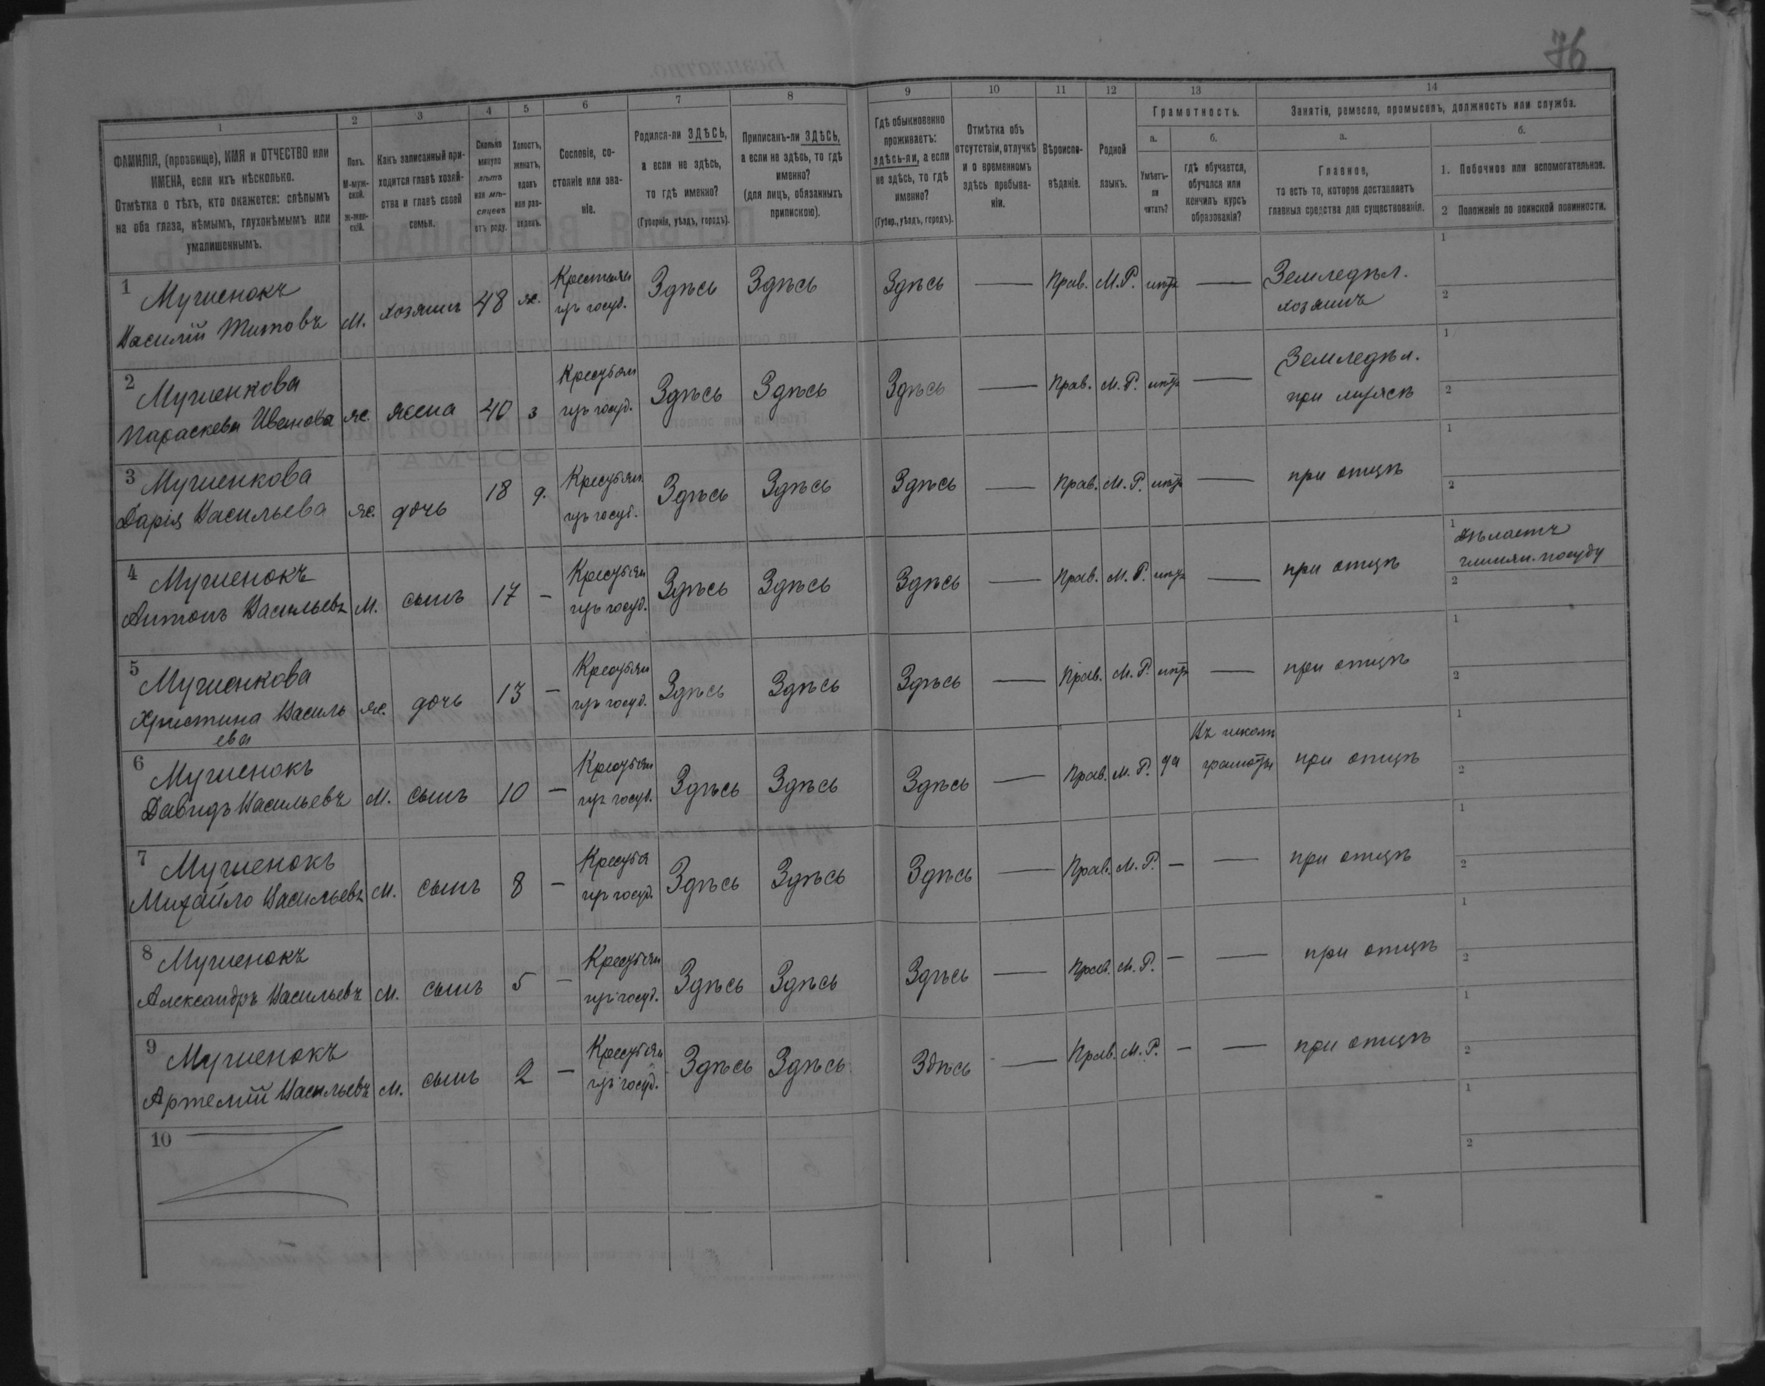 76
1
2
3
4
5
6
7
8
9
10
11
12
13
14
ФАМИЛІЯ, (прозвище), ИМЯ и ОТЧЕСТВО или
ИМЕНА, если ихъ нѣсколько.
Отмѣтка о тѣхъ, кто окажется: слѣпымъ
на оба глаза, нѣмымъ, глухонѣмымъ или
умалишеннымъ.
Полъ.
М-муж-
ской.
Ж-жен-
скій.
Какъ записанный при-
ходится главѣ хозяй-
ства и главѣ своей
семьи.
Сколько
минуло
лѣтъ
или мѣ-
сяцевъ
отъ роду.
Холостъ,
женатъ,
вдовъ
или раз-
веденъ.
Сословіе, со-
стояніе или зва-
ніе.
Родился-ли ЗДѢСЬ,
а если не здѣсь,
то гдѣ именно?
(Губернія, уѣздъ, городъ).
Приписанъ-ли ЗДѢСЬ,
а если не здѣсь, то гдѣ
именно?
(для лицъ, обязанныхъ
припискою).
Гдѣ обыкновенно
проживаетъ:
здѣсь-ли, а если
не здѣсь, то гдѣ
именно?
(Губер., уѣздъ, городъ).
Отмѣтка объ
отсутствіи, отлучкѣ
и о временномъ
здѣсь пребыва-
ніи.
Вѣроиспо-
вѣданіе.
Родной
языкъ.
Грамотность.
а.
б.
Умѣетъ-
ли
читать?
гдѣ обучается,
обучался или
кончилъ курсъ
образованія?
Занятія, ремесло, промыселъ, должность или служба.
а.
б.
Главное,
то есть то, которое доставляетъ
главныя средства для существованія.
1. Побочное или вспомогательное.
2 Положеніе по воинской повинности.
1
Василій Титовъ М. хозяинъ 48 ж. Крестьян изъ госуд. Здѣсь Здѣсь Здѣсь — Прав. М.Р. нѣтъ — Земледѣл. хозяинъ 1 2
2
Параскева Иванова ж. жена 40 з Крестьян изъ госуд. Здѣсь Здѣсь Здѣсь — Прав. М.Р. нѣтъ — Земледѣл. при мужѣ 1 2
3
Дарія Васильева ж. дочь 18 д. Крестьян изъ госуд. Здѣсь Здѣсь Здѣсь — Прав. М.Р. нѣтъ — при отцѣ 1 2
4
Антонъ Васильевъ М. сынъ 17 — Крестьян изъ госуд. Здѣсь Здѣсь Здѣсь — Прав. М.Р. нѣтъ — при отцѣ 1 дѣлаетъ глинян. посуду 2
5
Христина Василь
ева ж. дочь 13 — Крестьян изъ госуд. Здѣсь Здѣсь Здѣсь — Прав. М.Р. нѣтъ — при отцѣ 1 2
6
Давидъ Васильевъ М. сынъ 10 — Крестьян изъ госуд. Здѣсь Здѣсь Здѣсь — Прав. М.Р. да Въ школѣ грамоты при отцѣ 1 2
7
Михайло Васильевъ М. сынъ 8 — Крестья изъ госуд. Здѣсь Здѣсь Здѣсь — Прав. М.Р. — — при отцѣ 1 2
8
Александръ Васильевъ М. сынъ 5 — Крестьян изъ госуд. Здѣсь Здѣсь Здѣсь — Прав. М.Р. — — при отцѣ 1 2
9
Артемій Васильевъ М. сынъ 2 — Крестьян изъ госуд. Здѣсь Здѣсь Здѣсь — Прав. М.Р. — — при отцѣ 1 2
10
1
2